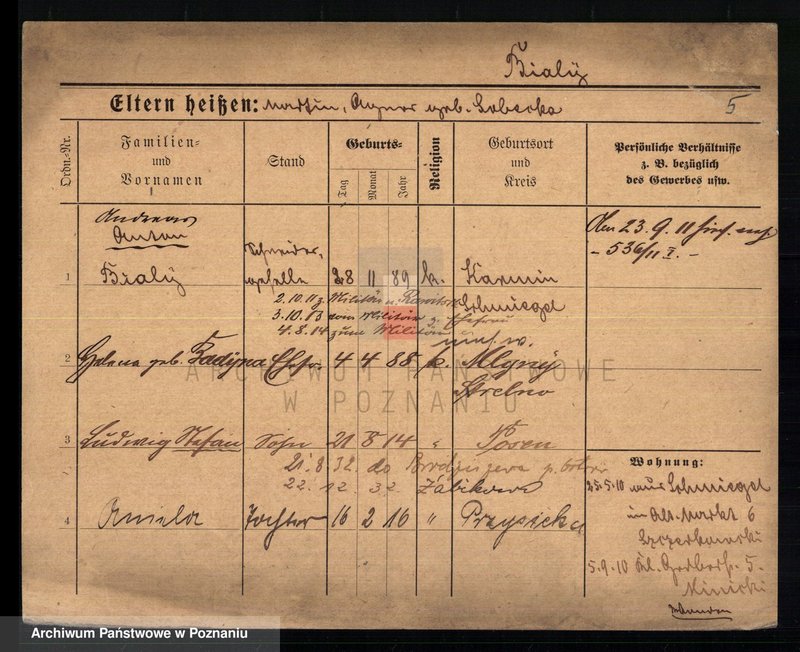 Bialy
Eltern heißen: Martin, Agnes geb. Sobecka
5
Ordn.-Nr.
Familien- und Vornamen
Stand
Geburts-
Tag Monat Jahr
Religion
Geburtsort und Kreis
Persönliche Verhältnisse z. B. bezüglich des Gewerbes usw.
Andreas
Anton
Den 23. 9. 11
- 536/11 I. -
Schneider,
1 Bialy 28 11 89 k. Karmin
2.10.11 z. Militär n. Rawitsch Schmiegel
3.10.13 vom Militär z.
4.8.14 zum Militär
2 Helena geb. Radzyna Ehefr. 4 4 88 k. Mlyny
Strelno
3 Ludwig Stefan Sohn 21 8 14 " Posen
21.8.32. do
22.12.32 Żabikowa
Wohnung:
25.5.10 aus Schmiegel
im Alt. Markt 6
Szczerkowski
4 Aniela Tochter 16 2 16 " Przysieka
5.9.10 Kl. Gerberstr. 5.
ARCHIWUM PAŃSTWOWE
W POZNANIU
Archiwum Państwowe w Poznaniu